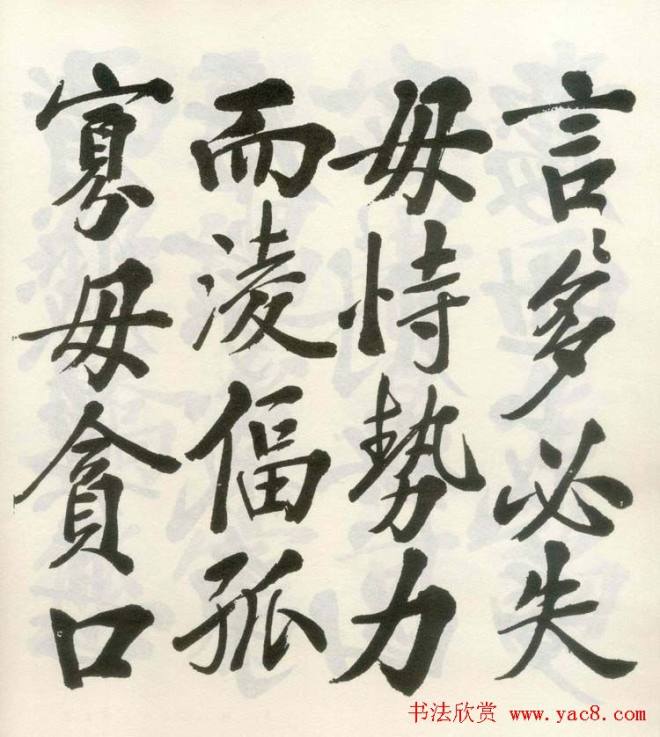 言〻多必失
毋恃勢力
而淩偪孤
寡毋貪口
书法欣赏 www.yac8.com